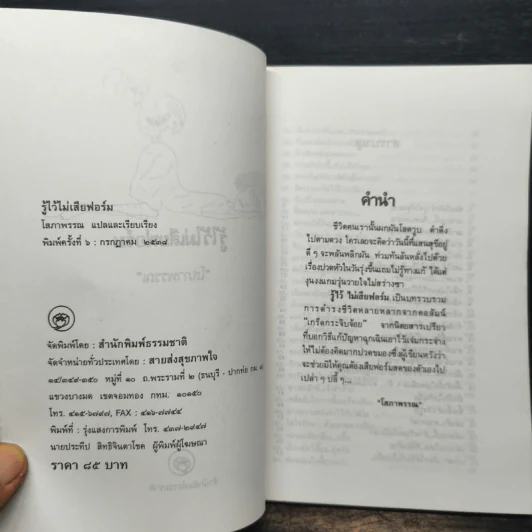 รู้ไว้ไม่เสียฟอร์ม
โสภาพรรณ แปลและเรียบเรียง
พิมพ์ครั้งที่ ๖ : กรกฎาคม ๒๕๓๘
จัดพิมพ์โดย : สำนักพิมพ์ธรรมชาติ
จัดจำหน่ายทั่วประเทศโดย : สายส่งสุขภาพใจ
๑๕/๓๔๙-๓๕๐ หมู่ที่ ๑๐ ถ.พระรามที่ ๒ (ธนบุรี - ปากท่อ กม
แขวงบางมด เขตจอมทอง กทม. ๑๐๑๕๐
โทร. ๔๑๕-๖๗๙๗, FAX : ๔๑๖-๗๗๔๔
พิมพ์ที่ : รุ่งแสงการพิมพ์ โทร. ๔๓๗-๒๙๔๗
นายประทีป สิทธิจินดาโชค ผู้พิมพ์ผู้โฆษณา
ราคา ๘๕ บาท
คำนำ
ชีวิตคนเรานั้นผกผันโลดวูบ ดำดิ่ง
ไปตามดวง ใครเลยจะคิดว่าวันนี้ที่แสนสุขอยู่
ดี ๆ จะพลันพลิกผัน ท่วมท้นล้นหลั่งไปด้วย
เรื่องปวดหัวในวันรุ่งขึ้นแถมไม่รู้ทางแก้ ได้แต่
งุนงงแกมวุ่นวายใจไม่สร่างซา
รู้ไว้ ไม่เสียฟอร์ม เป็นบทรวบรวม
การดำรงชีวิตหลายหลากจากคอลัมน์
"เกร็ดกระจิบจ้อย" จากนิตยสารเปรียว
ที่บอกวิธีแก้ปัญหาฉุกเฉินเอาไว้แจ่มกระจ่าง
ให้ไม่ต้องคิดมากปวดขมองซึ่งผู้เขียนหวังว่า
จะช่วยมิให้คุณต้องเสียฟอร์มสดของตัวเองไป
เปล่า ๆ ปลี้ ๆ...
"โสภาพรรณ"